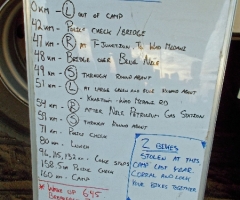 0KM - L OUT OF CAMP
42KM - POLICE CHECK / BRIDGE
47KM - R AT T-JUNCTION TO WAD MEDANI
48KM - BRIDGE OVER BLUE NILE
49KM - S THROUGH ROUND ABOUT
51KM - L AT LARGE GREEN AND BLUE ROUND ABOUT
- KHARTOUM - WAD MEDANI RD
54KM - R AFTER NILE PETROLEUM GAS STATION
59KM - S THROUGH ROUND ABOUT
71KM - POLICE CHECK
80KM - LUNCH
96, 115, 132 KM - COKE STOPS
158KM POLICE CHECK
160KM - CAMP
* WAKE UP 6:45
2 BIKES
STOLEN AT THIS
CAMP LAST YEAR.
CORRAL AND LOCK
YOUR BIKES TOGETHER